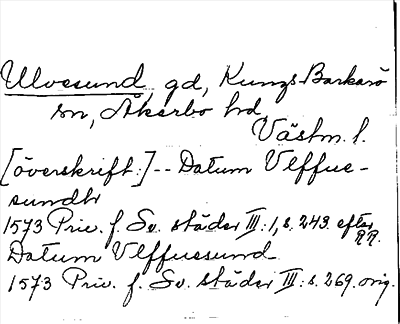 Ulvesund, gd, Kungs Barkarö
sn, Åkerbo hd,
Västm. l.
[överskrift:] -- Datum Ulffue-
sundh
1573 Priv. f. Sv. städer III:1, s. 243. efter RR.
Datum Ulffuesund
1573 Priv. f. Sv. städer III: s. 269. orig.